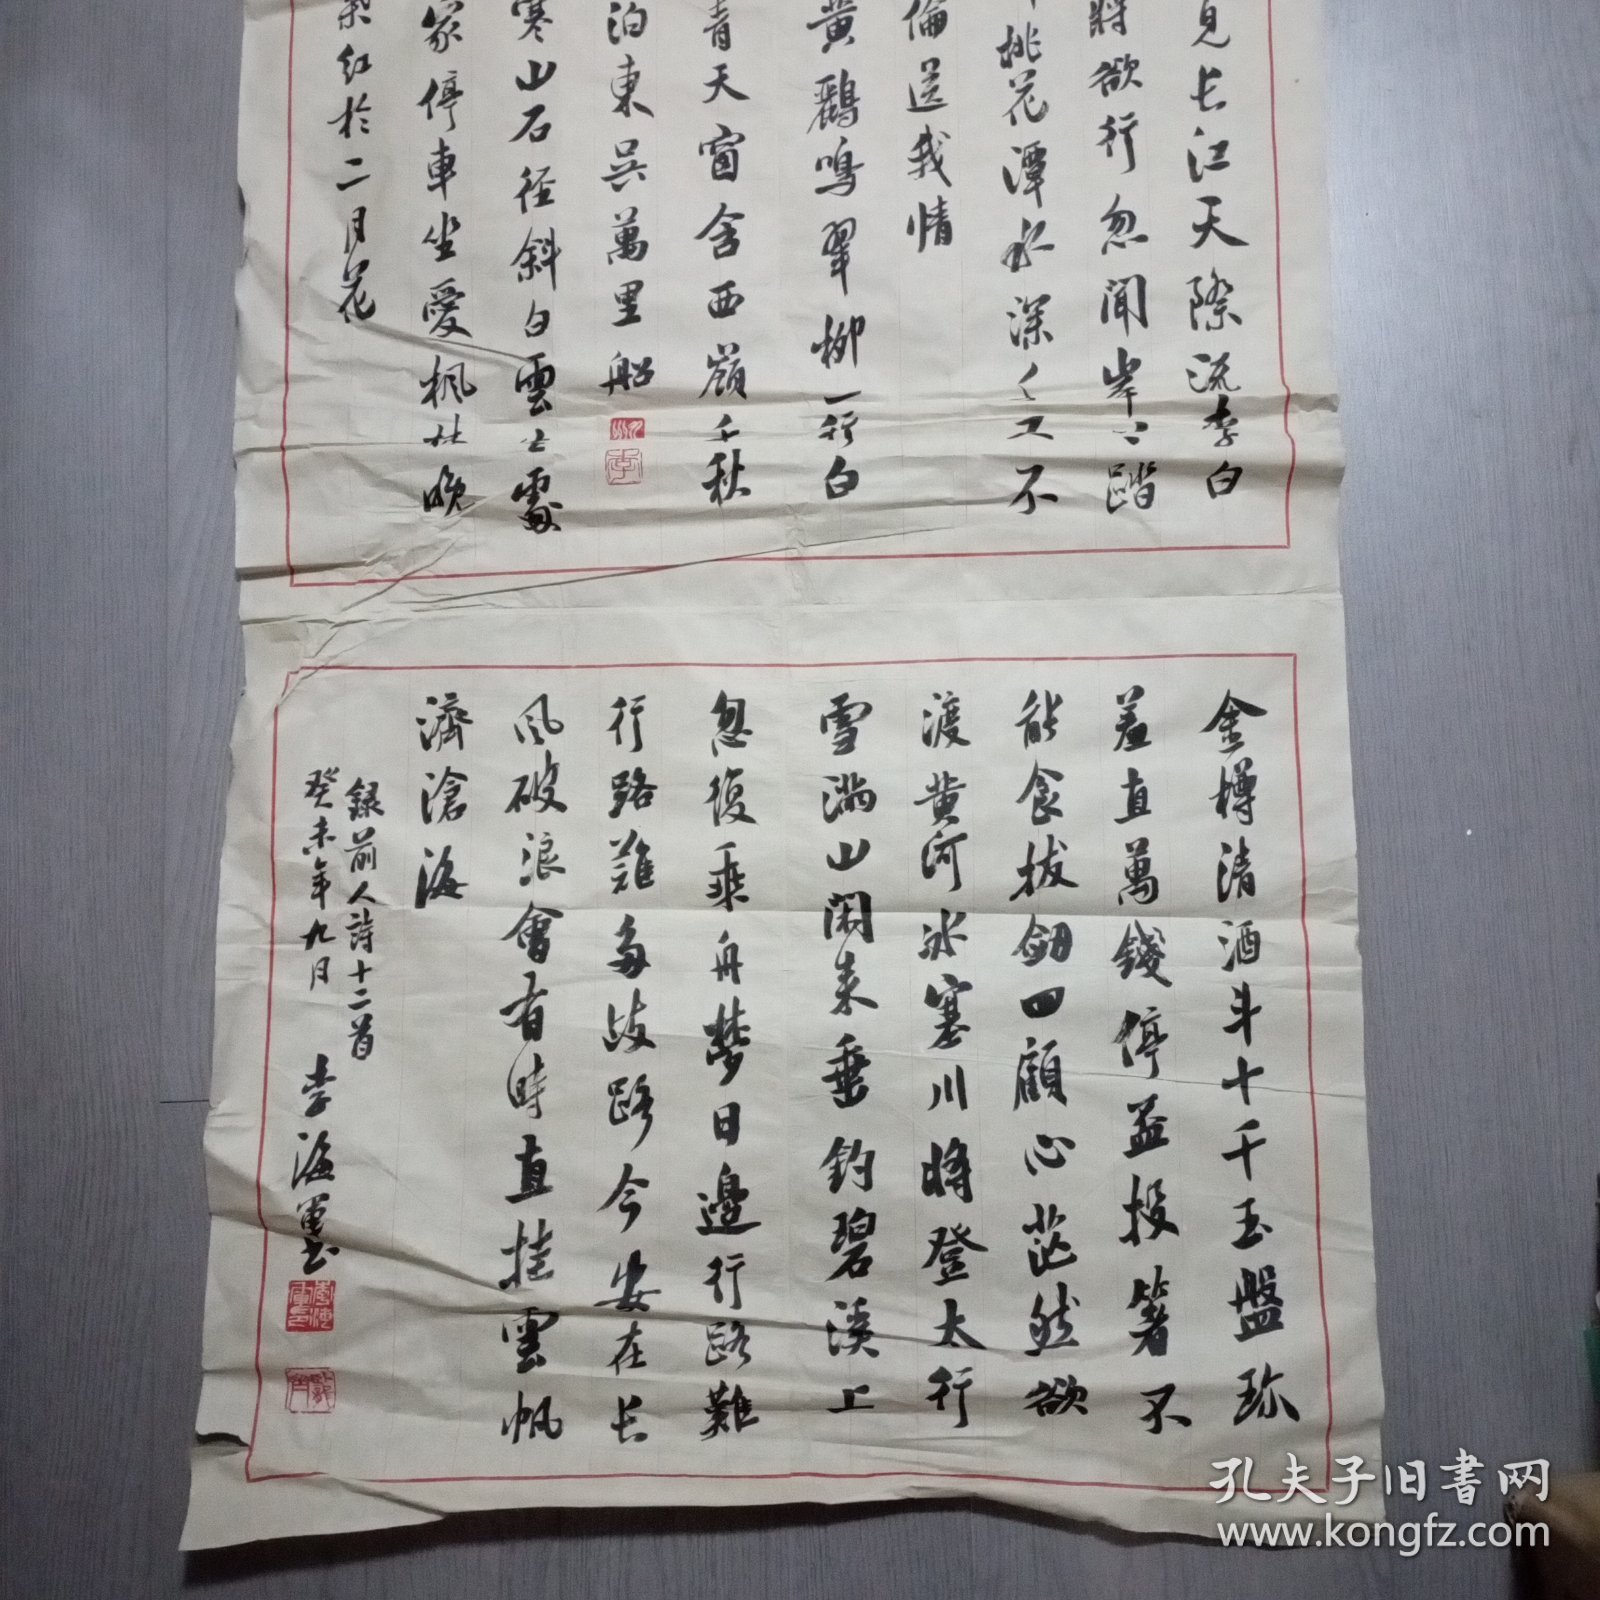 見長江天際流李白
將欲行忽聞岸上踏
桃花潭水深千尺不
倫送我情
黄鸝鳴翠柳一行白
青天窗含西嶺千秋
泊東吳萬里船
寒山石径斜白雲生處
家停車坐愛楓林晚
紅於二月花
金樽清酒斗十千玉盤珎
羞直萬錢停盃投箸不
能食拔劒四顧心茫然欲
渡黄河冰塞川將登太行
雪满山閑来垂釣碧溪上
忽復乘舟夢日邊行路難
行路難多歧路今安在長
風破浪會有時直挂雲帆
濟滄海
録前人詩十二首
癸未年九月 李海軍書
孔夫子旧書网
www.kongfz.com